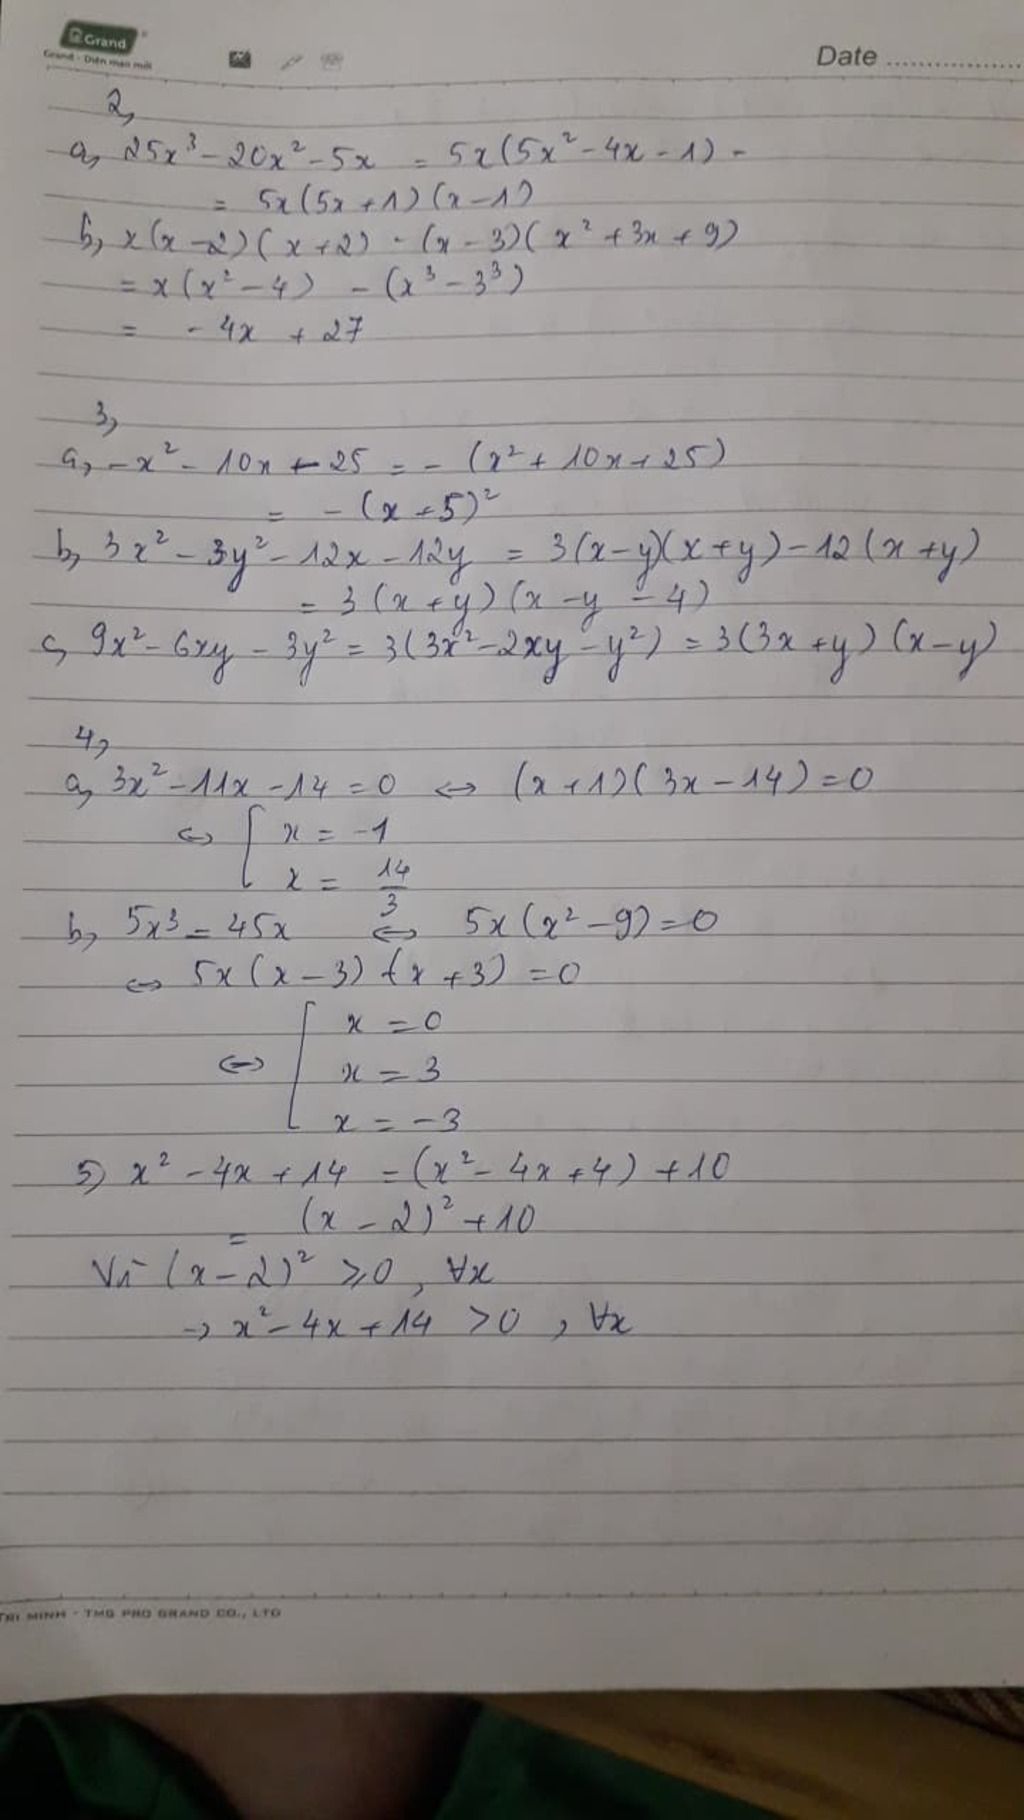 Grand
Grand - Diện mạo mới
Date ................
2,
a, 25x³ - 20x² - 5x = 5x(5x² - 4x - 1) -
= 5x(5x + 1)(x - 1)
b, x(x - 2)(x + 2) - (x - 3)(x² + 3x + 9)
= x(x² - 4) - (x³ - 3³)
= - 4x + 27
3,
a, -x² - 10x - 25 = - (x² + 10x + 25)
= - (x + 5)²
b, 3x² - 3y² - 12x - 12y = 3(x - y)(x + y) - 12(x + y)
= 3(x + y)(x - y - 4)
c, 9x² - 6xy - 3y² = 3(3x² - 2xy - y²) = 3(3x + y)(x - y)
4,
a, 3x² - 11x - 14 = 0 ⇔ (x + 1)(3x - 14) = 0
⇔ [ x = -1
x = 14/3
b, 5x³ = 45x ⇔ 5x(x² - 9) = 0
⇔ 5x(x - 3)(x + 3) = 0
x = 0
⇔ [ x = 3
x = -3
5) x² - 4x + 14 = (x² - 4x + 4) + 10
= (x - 2)² + 10
Vì (x - 2)² ⩾ 0, ∀x
→ x² - 4x + 14 > 0, ∀x
TRI MINH - TMG PRO GRAND CO., LTD